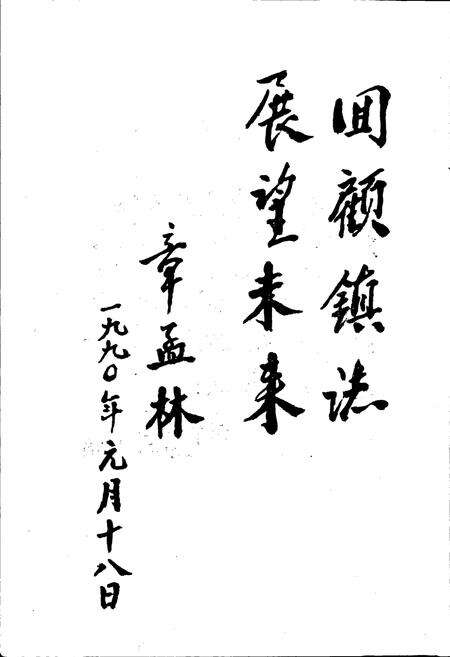 回顾鎮誌
展望未来
章孟林
一九九〇年元月十八日